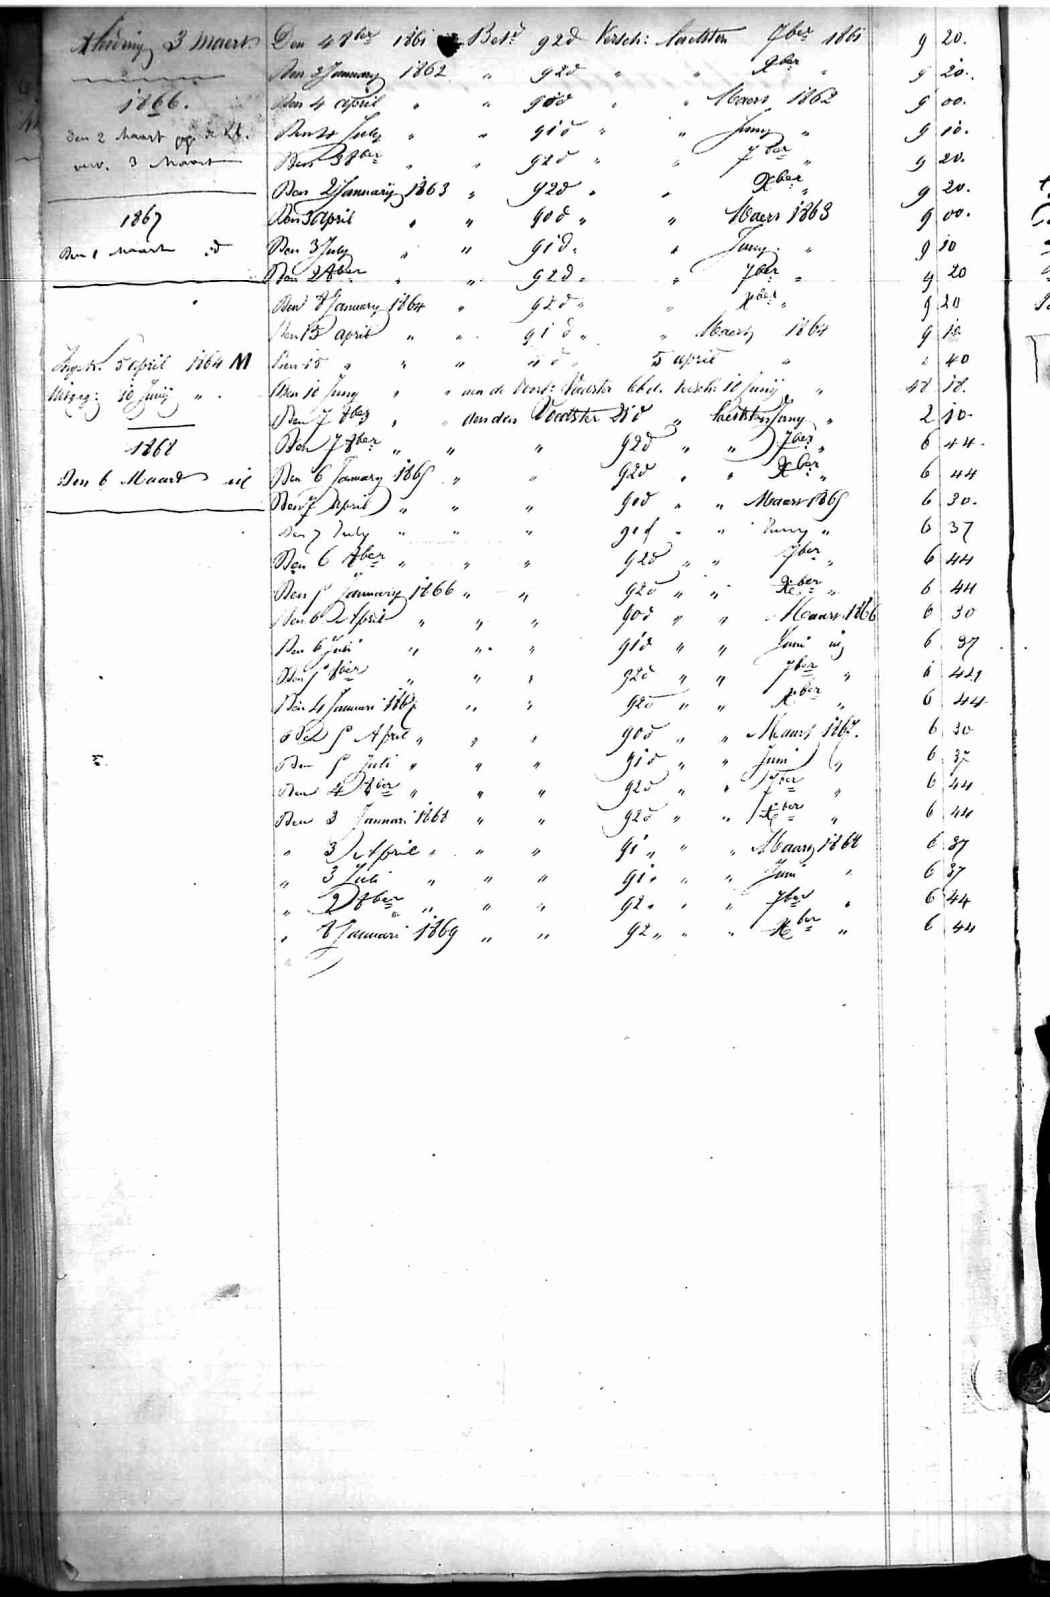 Kleding 3 Maert
1866.
Den 2 Maart
3 Maart
1867
Den 1 Maart id
Ingetr. 5 april 1864 M
Uitgeg: 10 Junij "
1868
Den 6 Maart id
Den 4 8ber 1861 Betd 92d Versch: laetsten 7ber 1861 9 20.
Den 2 January 1862 " 92d " " Xber " 9 20.
Den 4 april " " 90d " " Maers 1862 9 00.
Den 4 July " " 91d " " Juny " 9 10.
Den 3 8ber " " 92d " " 7ber " 9 20.
Den 2 Januarij 1863 " 92d " " Xber " 9 20.
Den 3 april " " 90d " " Maers 1863 9 00.
Den 3 July " " 91d " " Juny " 9 10
Den 2 8ber " " 92d " " 7ber " 9 20
Den 8 January 1864 " 92d " " Xber " 9 20
Den 15 april " " 91d " " Maert 1864 9 10
Den 15 " " " " d " 5 april " " 40
Den 10 Juny " " aan de Voedster versch: 10 junij " 48 18.
Den 7 8ber " " aan den Voedster 21d " laetsten Juny " 2 10.
Den 7 8ber " " " 92d " " 7ber " 6 44.
Den 6 January 1865 " " 92d " " Xber " 6 44
Den 7 April " " " 90d " " Maers 1865 6 30.
Den 7 July " " " 91d " " Juny " 6 37
Den 6 8ber " " " 92d " " 7ber " 6 44
Den 5 January 1866 " " 92d " " Xber " 6 44
Den 6 April " " " 90d " " Maars 1866 6 30
Den 6 Juli " " " 91d " " Juni " 6 37
Den 5 8ber " " " 92d " " 7ber " 6 44
Den 4 Januari 1867 " " 92d " " Xber " 6 44
Den 5 April " " " 90d " " Maart 1867. 6 30
Den 5 Juli " " " 91d " " Juni " 6 37
Den 4 8ber " " " 92d " " 7ber " 6 44
Den 3 Januari 1868 " " 92d " " Xber " 6 44
" 3 April " " " 91 " " " Maart 1868 6 37
" 3 Juli " " " 91 " " " Juni " 6 37
" 2 8ber " " " 92 " " " 7ber " 6 44
" 8 Januari 1869 " " 92 " " " Xber " 6 44